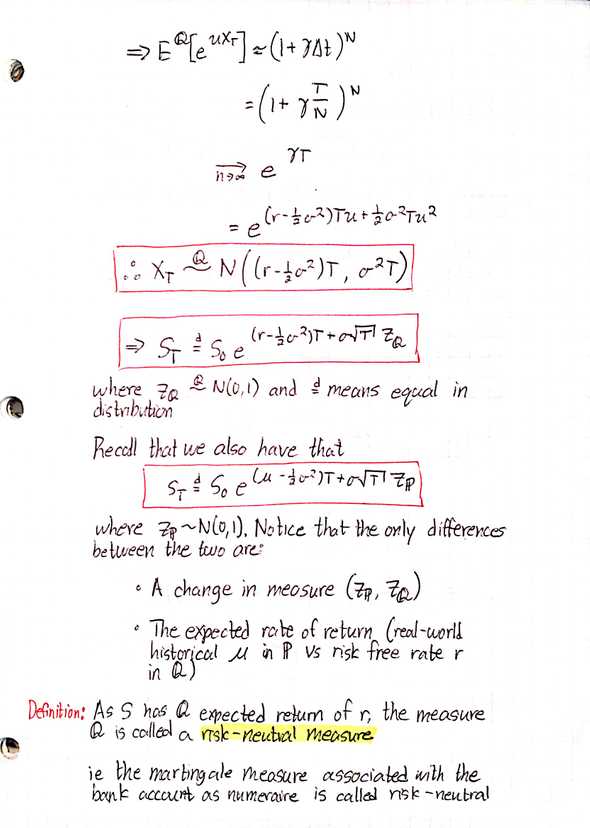 ⇒ E^Q[e^{uX_T}] ≈ (1 + γΔt)^N
= (1 + γ T/N)^N
→_{n→∞} e^{γT}
= e^{(r-½σ²)Tu + ½σ²Tu²}
∴ X_T ~^Q N((r-½σ²)T, σ²T)
⇒ S_T =^d S_0 e^{(r-½σ²)T + σ√T Z_Q}
where Z_Q ~^Q N(0,1) and =^d means equal in
distribution
Recall that we also have that
S_T =^d S_0 e^{(μ-½σ²)T + σ√T Z_ℙ}
where Z_ℙ ~ N(0,1). Notice that the only differences
between the two are:
• A change in measure (Z_ℙ, Z_Q)
• The expected rate of return (real-world
historical μ in ℙ vs risk free rate r
in Q)
Definition: As S has Q expected return of r, the measure
Q is called a risk-neutral measure
ie the martingale measure associated with the
bank account as numeraire is called risk-neutral